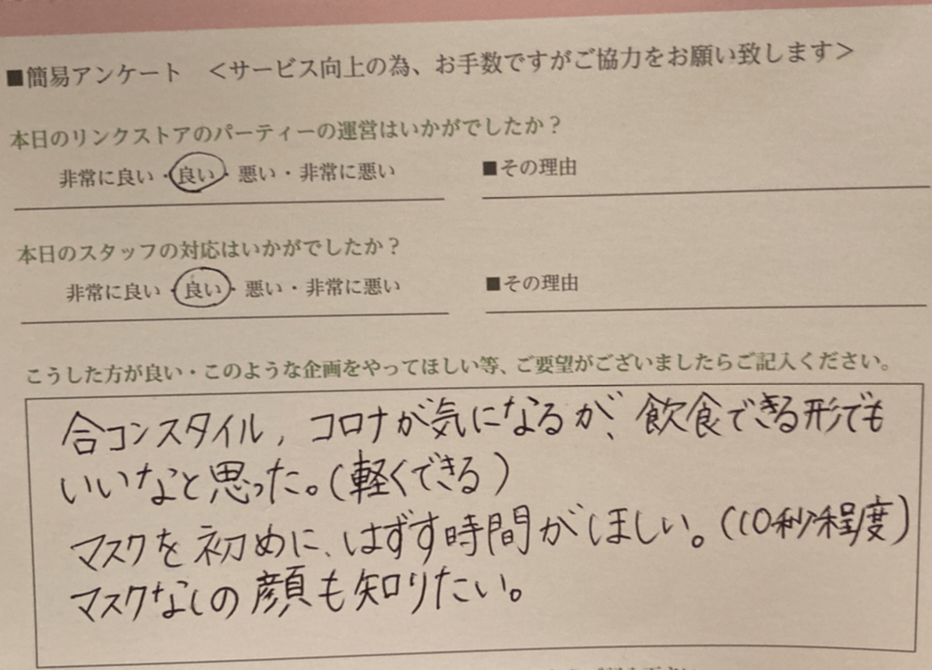 ■簡易アンケート ＜サービス向上の為、お手数ですがご協力をお願い致します＞
本日のリンクストアのパーティーの運営はいかがでしたか？
非常に良い・良い・悪い・非常に悪い ■その理由
本日のスタッフの対応はいかがでしたか？
非常に良い・良い・悪い・非常に悪い ■その理由
こうした方が良い・このような企画をやってほしい等、ご要望がございましたらご記入ください。
合コンスタイル, コロナが気になるが、飲食できる形でも
いいなと思った。(軽くできる)
マスクを初めに、はずす時間がほしい。(10秒程度)
マスクなしの顔も知りたい。